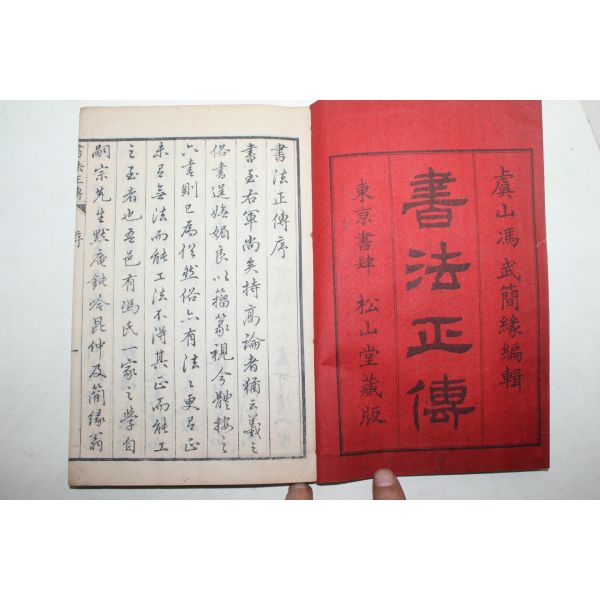 虞山馮武簡緣編輯
書法正傳
東京書肆 松山堂藏版
書法正傳序
書至右軍尚矣持高論者猶云羲之
俗書逞姿媚良以籀篆視今體按之
六書則已為俗然俗六有法之更有正
未有無法而能工法不得其正而能工
之至者也吾邑有馮氏一家之學自
嗣宗先生默庵鈍吟昆仲及簡緣翁
書法正傳 序